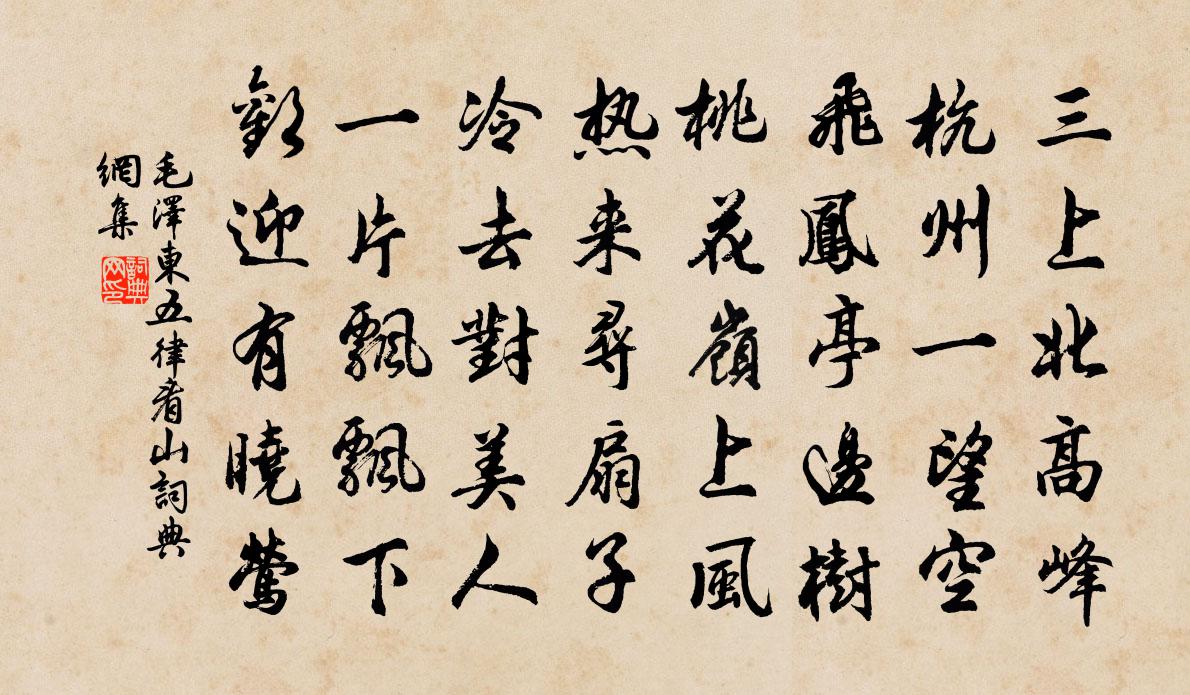 三上北高峰
杭州一望空
飛鳳亭邊樹
桃花嶺上風
热来尋扇子
冷去對美人
一片飄飄下
歡迎有曉鶯
毛澤東五律看山詞典
網集
詞典
网印